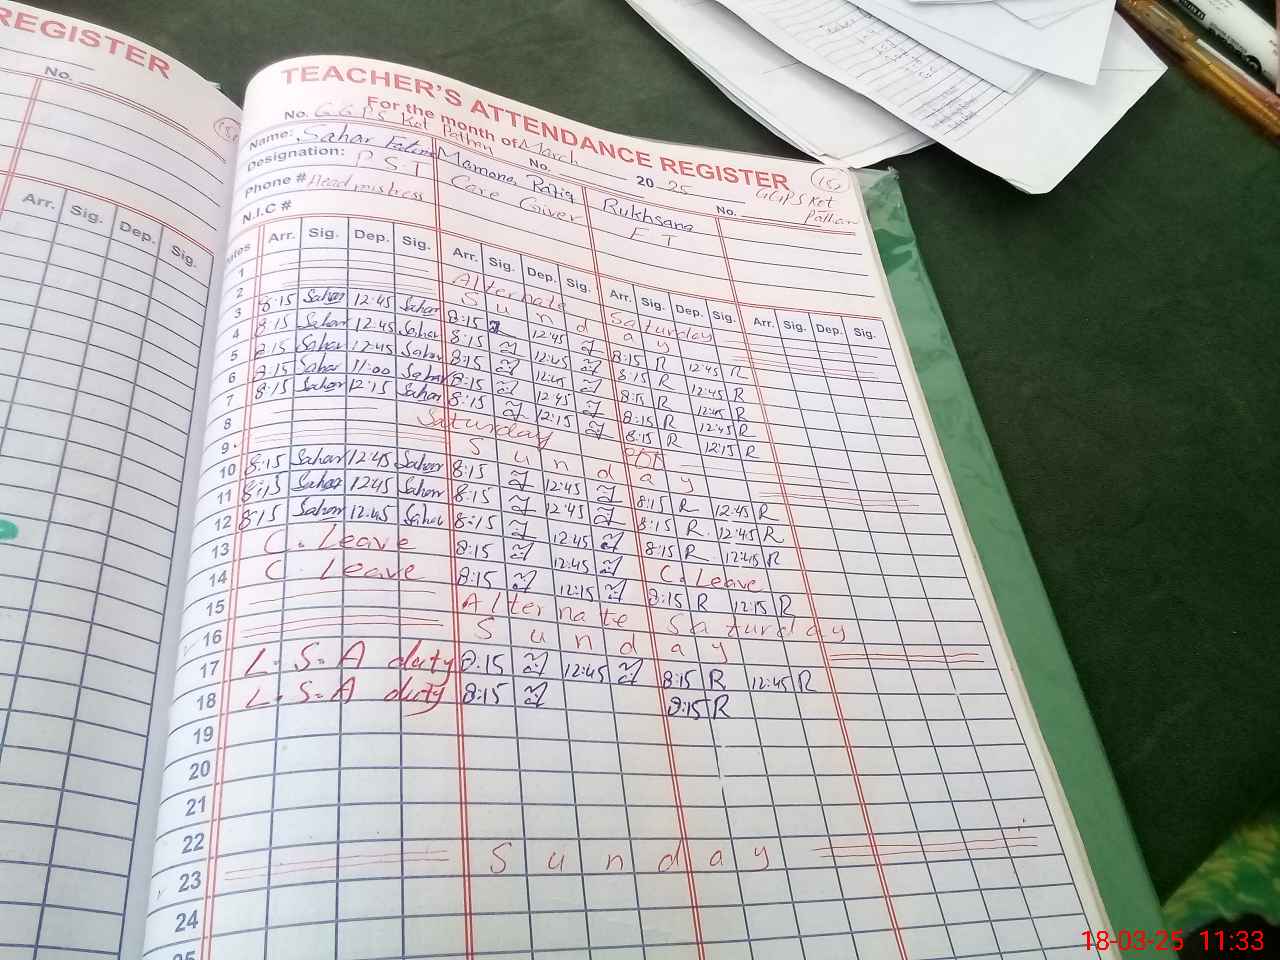 REGISTER
No.
Arr. Sig. Dep. Sig.
TEACHER'S ATTENDANCE REGISTER
For the month of March 2025
No. GGPS Kot Pathan No. No. GGPS Kot Pathan
Name: Sahar Fatima Mamona Rafiq Rukhsana
Designation: P.S.T Care Giver E T
Phone # Headmistress
N.I.C #
Arr. Sig. Dep. Sig. Arr. Sig. Dep. Sig. Arr. Sig. Dep. Sig. Arr. Sig. Dep. Sig.
1 Alternate Saturday
2 Sunday
3 8:15 Sahar 12:45 Sahar 8:15 12:45 8:15 R 12:45 R
4 8:15 Sahar 12:45 Sahar 8:15 12:45 8:15 R 12:45 R
5 8:15 Sahar 12:45 Sahar 8:15 12:45 8:15 R 12:45 R
6 8:15 Sahar 11:00 Sahar 8:15 12:45 8:15 R 12:45 R
7 8:15 Sahar 12:15 Sahar 8:15 12:15 8:15 R 12:15 R
8 Saturday
9 Sunday
10 8:15 Sahar 12:45 Sahar 8:15 12:45 8:15 R 12:45 R
11 8:15 Sahar 12:45 Sahar 8:15 12:45 8:15 R 12:45 R
12 8:15 Sahar 12:45 Sahar 8:15 12:45 8:15 R 12:45 R
13 C. Leave 8:15 12:45 C. Leave
14 C. Leave 8:15 12:15 8:15 R 12:15 R
15 Alternate Saturday
16 Sunday
17 L.S.A duty 8:15 12:45 8:15 R 12:45 R
18 L.S.A duty 8:15 8:15 R
19
20
21
22
23 Sunday
24
25
18-03-25 11:33